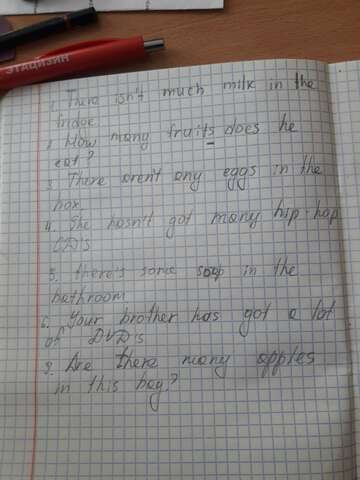 ЭТАЦИЗИН
1. There isn't much milk in the
fridge
2. How many fruits does he
eat?
3. There aren't any eggs in the
box
4. She hasn't got many hip-hop
CD's
5. there's some soap in the
bathroom
6. Your brother has got a lot
of DVD's
8. Are there many apples
in this bag?